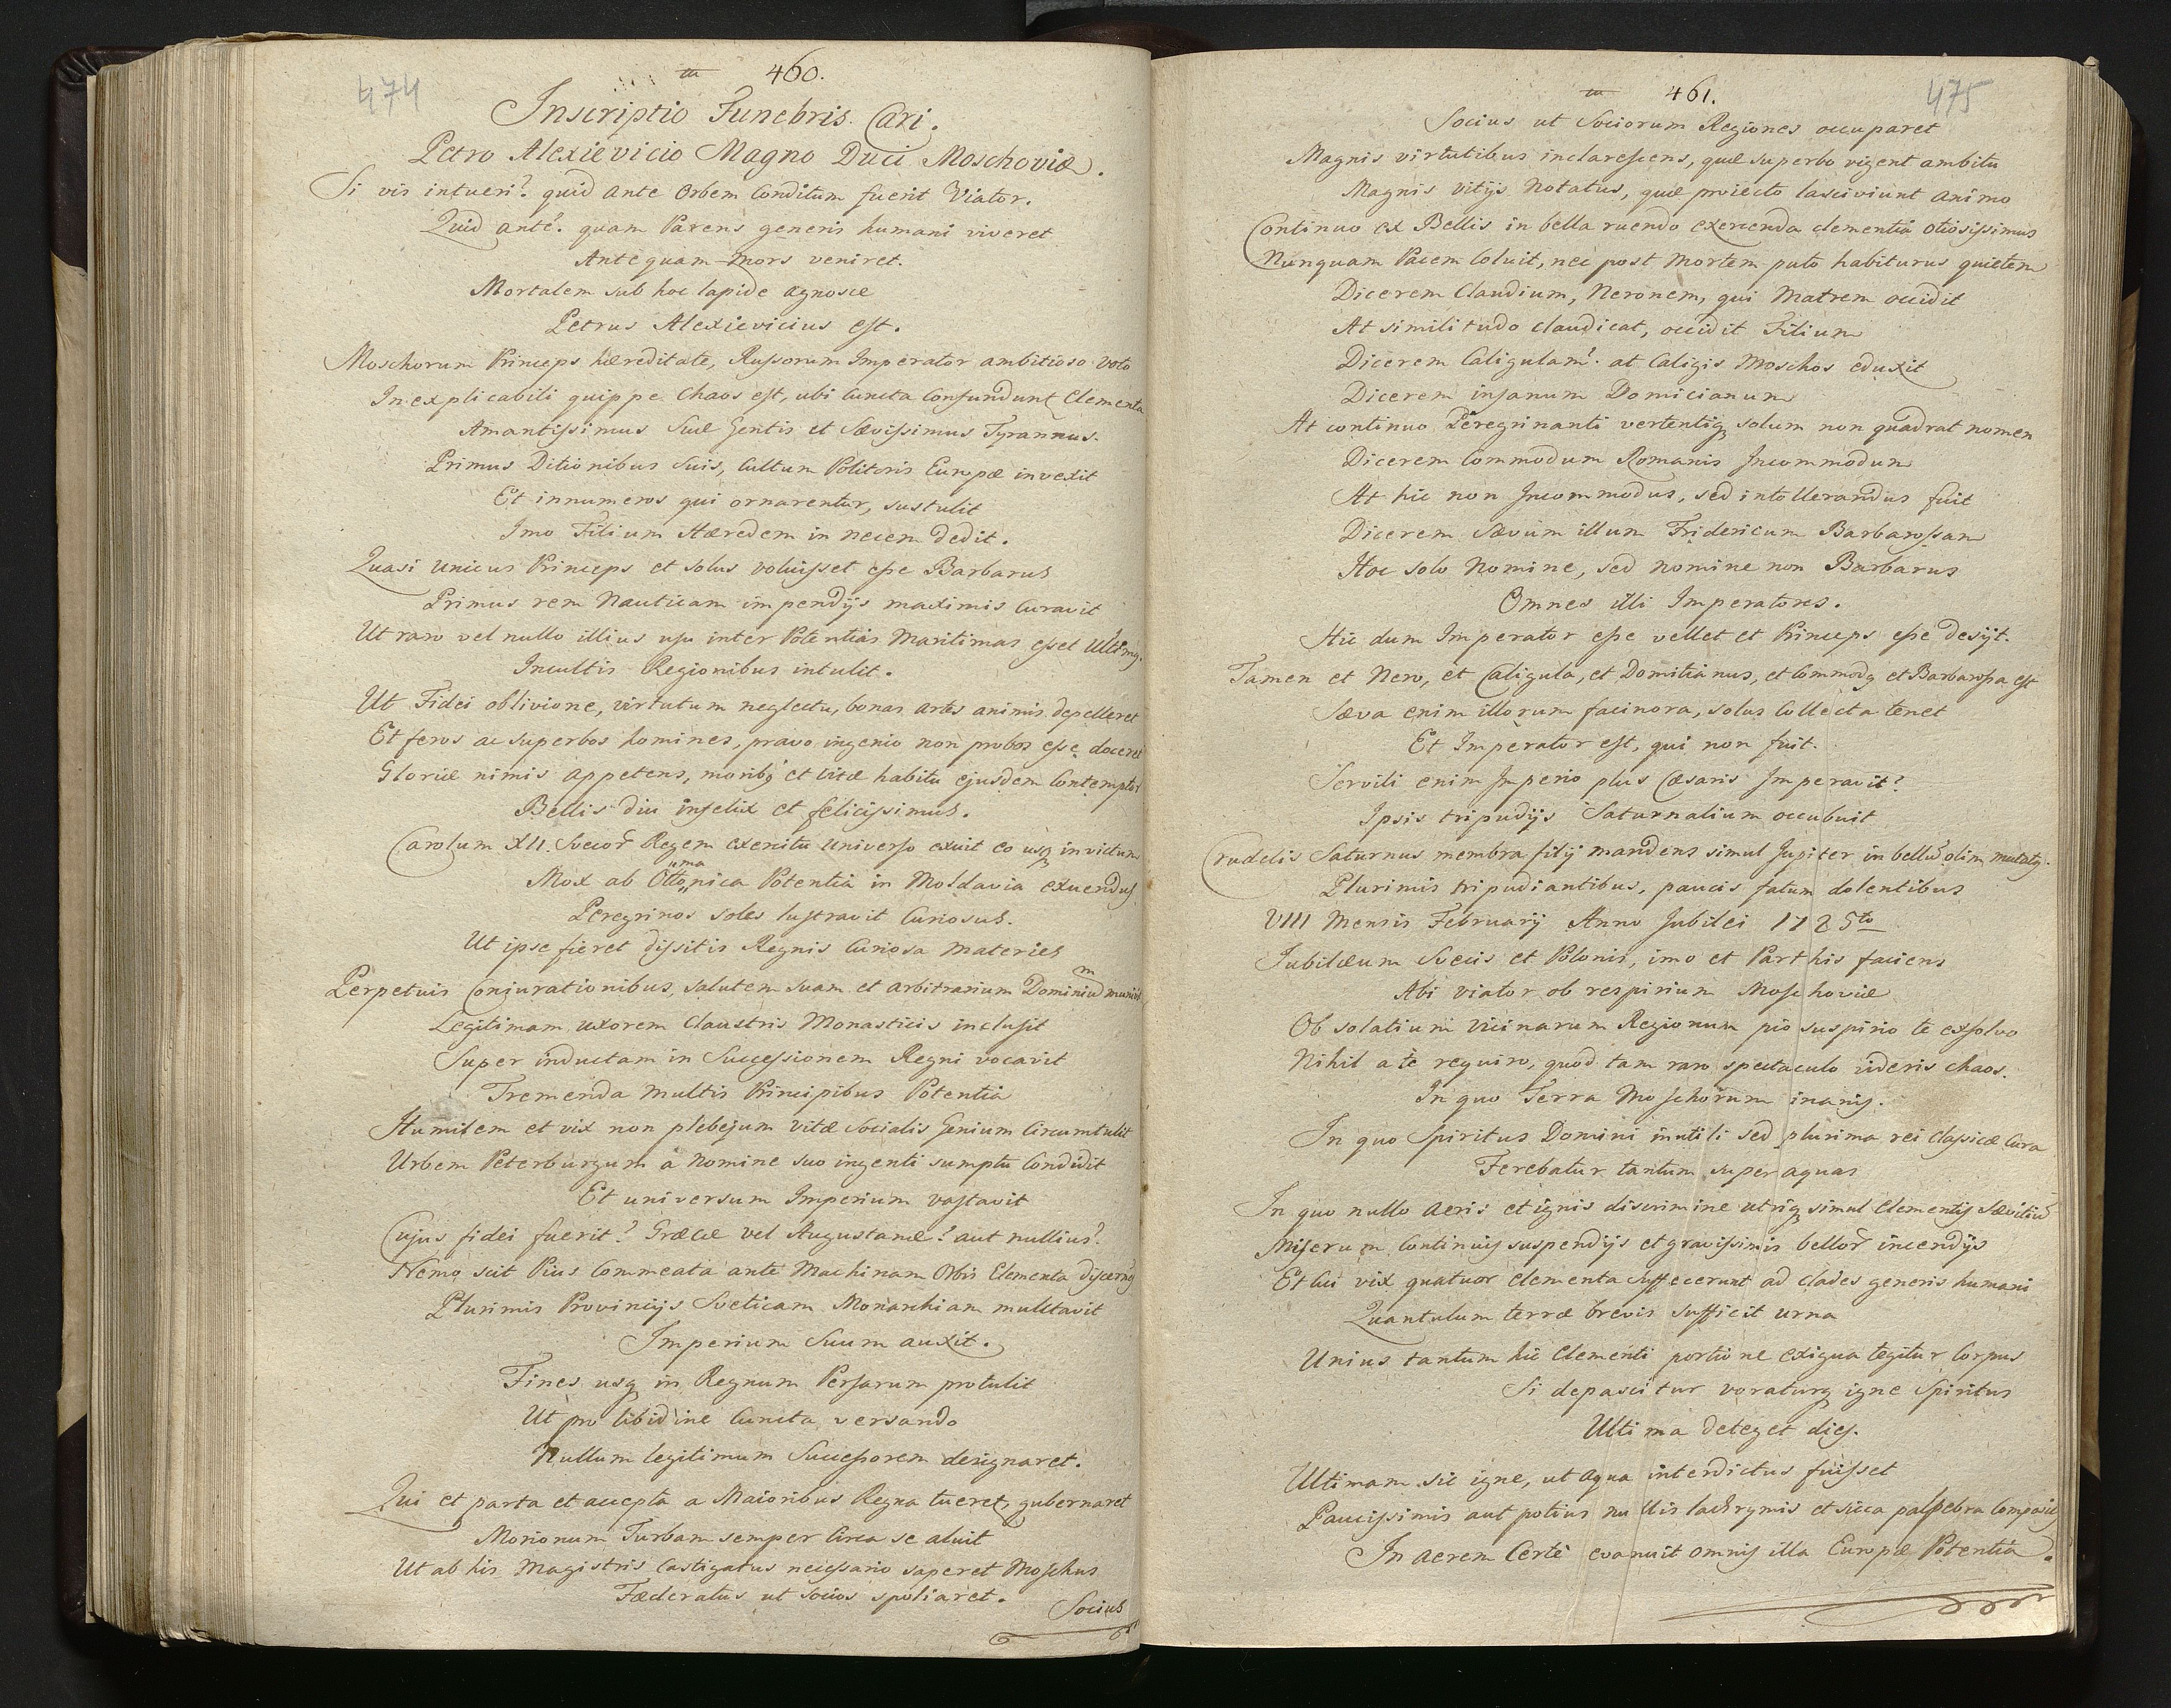 460.
474
Inscriptio Funebris Cari.
Petro Alexievicio Magno Duci Moschoviæ.
Si vis intueri? quid ante Orbem Conditum fuerit Viator.
Quid ante? quam Parens generis humani viveret
Antequam Mors veniret.
Mortalem sub hoc lapide agnosce
Petrus Alexievicius est.
Moschorum Princeps hæreditate, Russorum Imperator ambitioso voto
Inexplicabili quippe Chaos est, ubi Cuncta Confundunt Elementa
Amantissimus Suæ Gentis et Sævissimus Tyrannus.
Primus Ditionibus Suis, Cultum Politeris Europæ invexit
Et innumeros qui ornarentur, sustulit
Imo Filium Hæredem in necem dedit.
Quasi unicus Princeps et solus voluisset esse Barbarus
Primus rem Nauticam impendijs maximis Curavit
Ut raro vel nullo illius usu inter Potentias Maritimas esset Ultimg.
Incultis Regionibus intulit.
Ut Fidei oblivione, virtutum neglectu, bonas artes animis depelleret
Et feros ac superbos homines, pravo ingenio non probos esse doceret
Gloriæ nimis appetens, moribg et vitæ habitu ejusdem Contemptor
Bellis diu infelix et felicissimus.
Carolum XII. Svecor Regem exercitu universo exuit eo usq invictum
Mox ab Ottomanica Potentia in Moldavia exuendus
Peregrinos soles lustravit Curiosus.
Ut ipse fieret dissitis Regnis Curiosa Materies
Perpetuis Conjurationibus, salutem suam et arbitrarium Dominium munivit
Legitimam uxorem Claustris Monasticis inclusit
Super inductam in Successionem Regni vocavit
Tremenda multis Principibus Potentia
Humilem et vix non plebejum vitæ Socialis Genium Circumtulit
Urbem Peterburgum à Nomine suo ingenti sumptu Condidit
Et universum Imperium vastavit
Cujus fidei fuerit? Græcæ vel Augustanæ? aut nullius?
Nemo scit Pius Commeata ante Machinam Orbis Elementa discerng
Plurimis Provincijs Sveticam Monarchiam mulctavit
Imperium Suum auxit.
Fines usq in Regnum Persarum protulit
Ut pro libidine Cuncta versando
Nullum legitimum Successorem designaret.
Qui et parta et accepta a Maioribus Regna tueret, gubernaret
Morionum Turbam semper Circa se aluit
Ut ab his Magistris Castigatus necessario saperet Moschus
Fæderatus ut socios spoliaret.
Socius
461.
475
Socius ut Sociorum Regiones occuparet
Magnis virtutibus inclarescens, quæ superbo vigent ambitu
Magnis vitijs Notatus, quæ proiecto lasciviunt animo
Continuo ex Bellis in bella ruendo exercenda clementiâ otiosissimus
Nunquam Pacem Coluit, nec post Mortem puto habiturus quietem
Dicerem Claudium, Neronem, qui Matrem occidit
At similitudo claudicat, occidit Filium
Dicerem Caligulam? at Caligis Moschos eduxit
Dicerem insanum Domicianum
At continuo Peregrinanti vertentiq solum non quadrat nomen
Dicerem Commodum Romanis Incommodum
At hic non Incommodus, sed intollerandus fuit
Dicerem Sævum illum Fridericum Barbarossam
Hoc solo Nomine, sed nomine non Barbarus
Omnes illi Imperatores.
Hic dum Imperator esse vellet et Princeps esse desijt.
Tamen et Nero, et Caligula, et Domitianus, et Commodg et Barbarossa est
Sæva enim illorum facinora, solus Collecta tenet
Et Imperator est, qui non fuit.
Servili enim Imperio plus Cæsaris Imperavit?
Ipsis tripudijs Saturnalium occubuit
Crudelis Saturnus membra filij mandens simul Jupiter in bellu olim mutatg.
Plurimis tripudiantibus, paucis fatum dolentibus
VIII Mensis Februarij Anno Jubilei 1725to
Jubilæum Svecis et Polonis, imo et Parthis faciens
Abi viator ob respirium Moschoviæ
Ob solatium vicinarum Regionum pio suspirio te exsolvo
Nihil a te requiro, quod tam raro spectaculo videris chaos.
In quo Terra Moschorum inanis.
In quo Spiritus Domini inutili sed plurima rei Classicæ Cura
Ferebatur tantum super aquas
In quo nullo Aeris et ignis discrimine utriq simul Elementis Sævitiu
Miserum Continuis suspendijs et gravissimis bellor incendijs
Et Cui vix quatuor Elementa suffecerunt ad clades generis humani
Quantulum terræ brevis sufficit urna
Unius tantum hic Elementi portione exigua tegitur Corpus
Si depascitur voraturq igne Spiritus
Ultima deteget dies.
Ultimam sic igne, ut aqua interdictus fuisset
Paucissimis aut potius nullis lachrymis et sicca palpebra
In aerem Certè evanuit omnis illa Europæ Potentia.